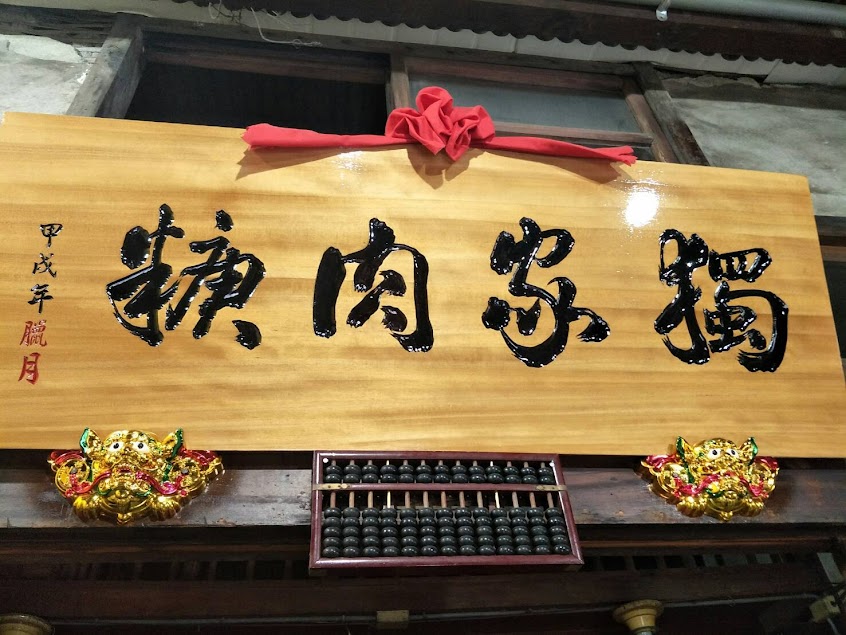 獨家肉
甲戌年臘月